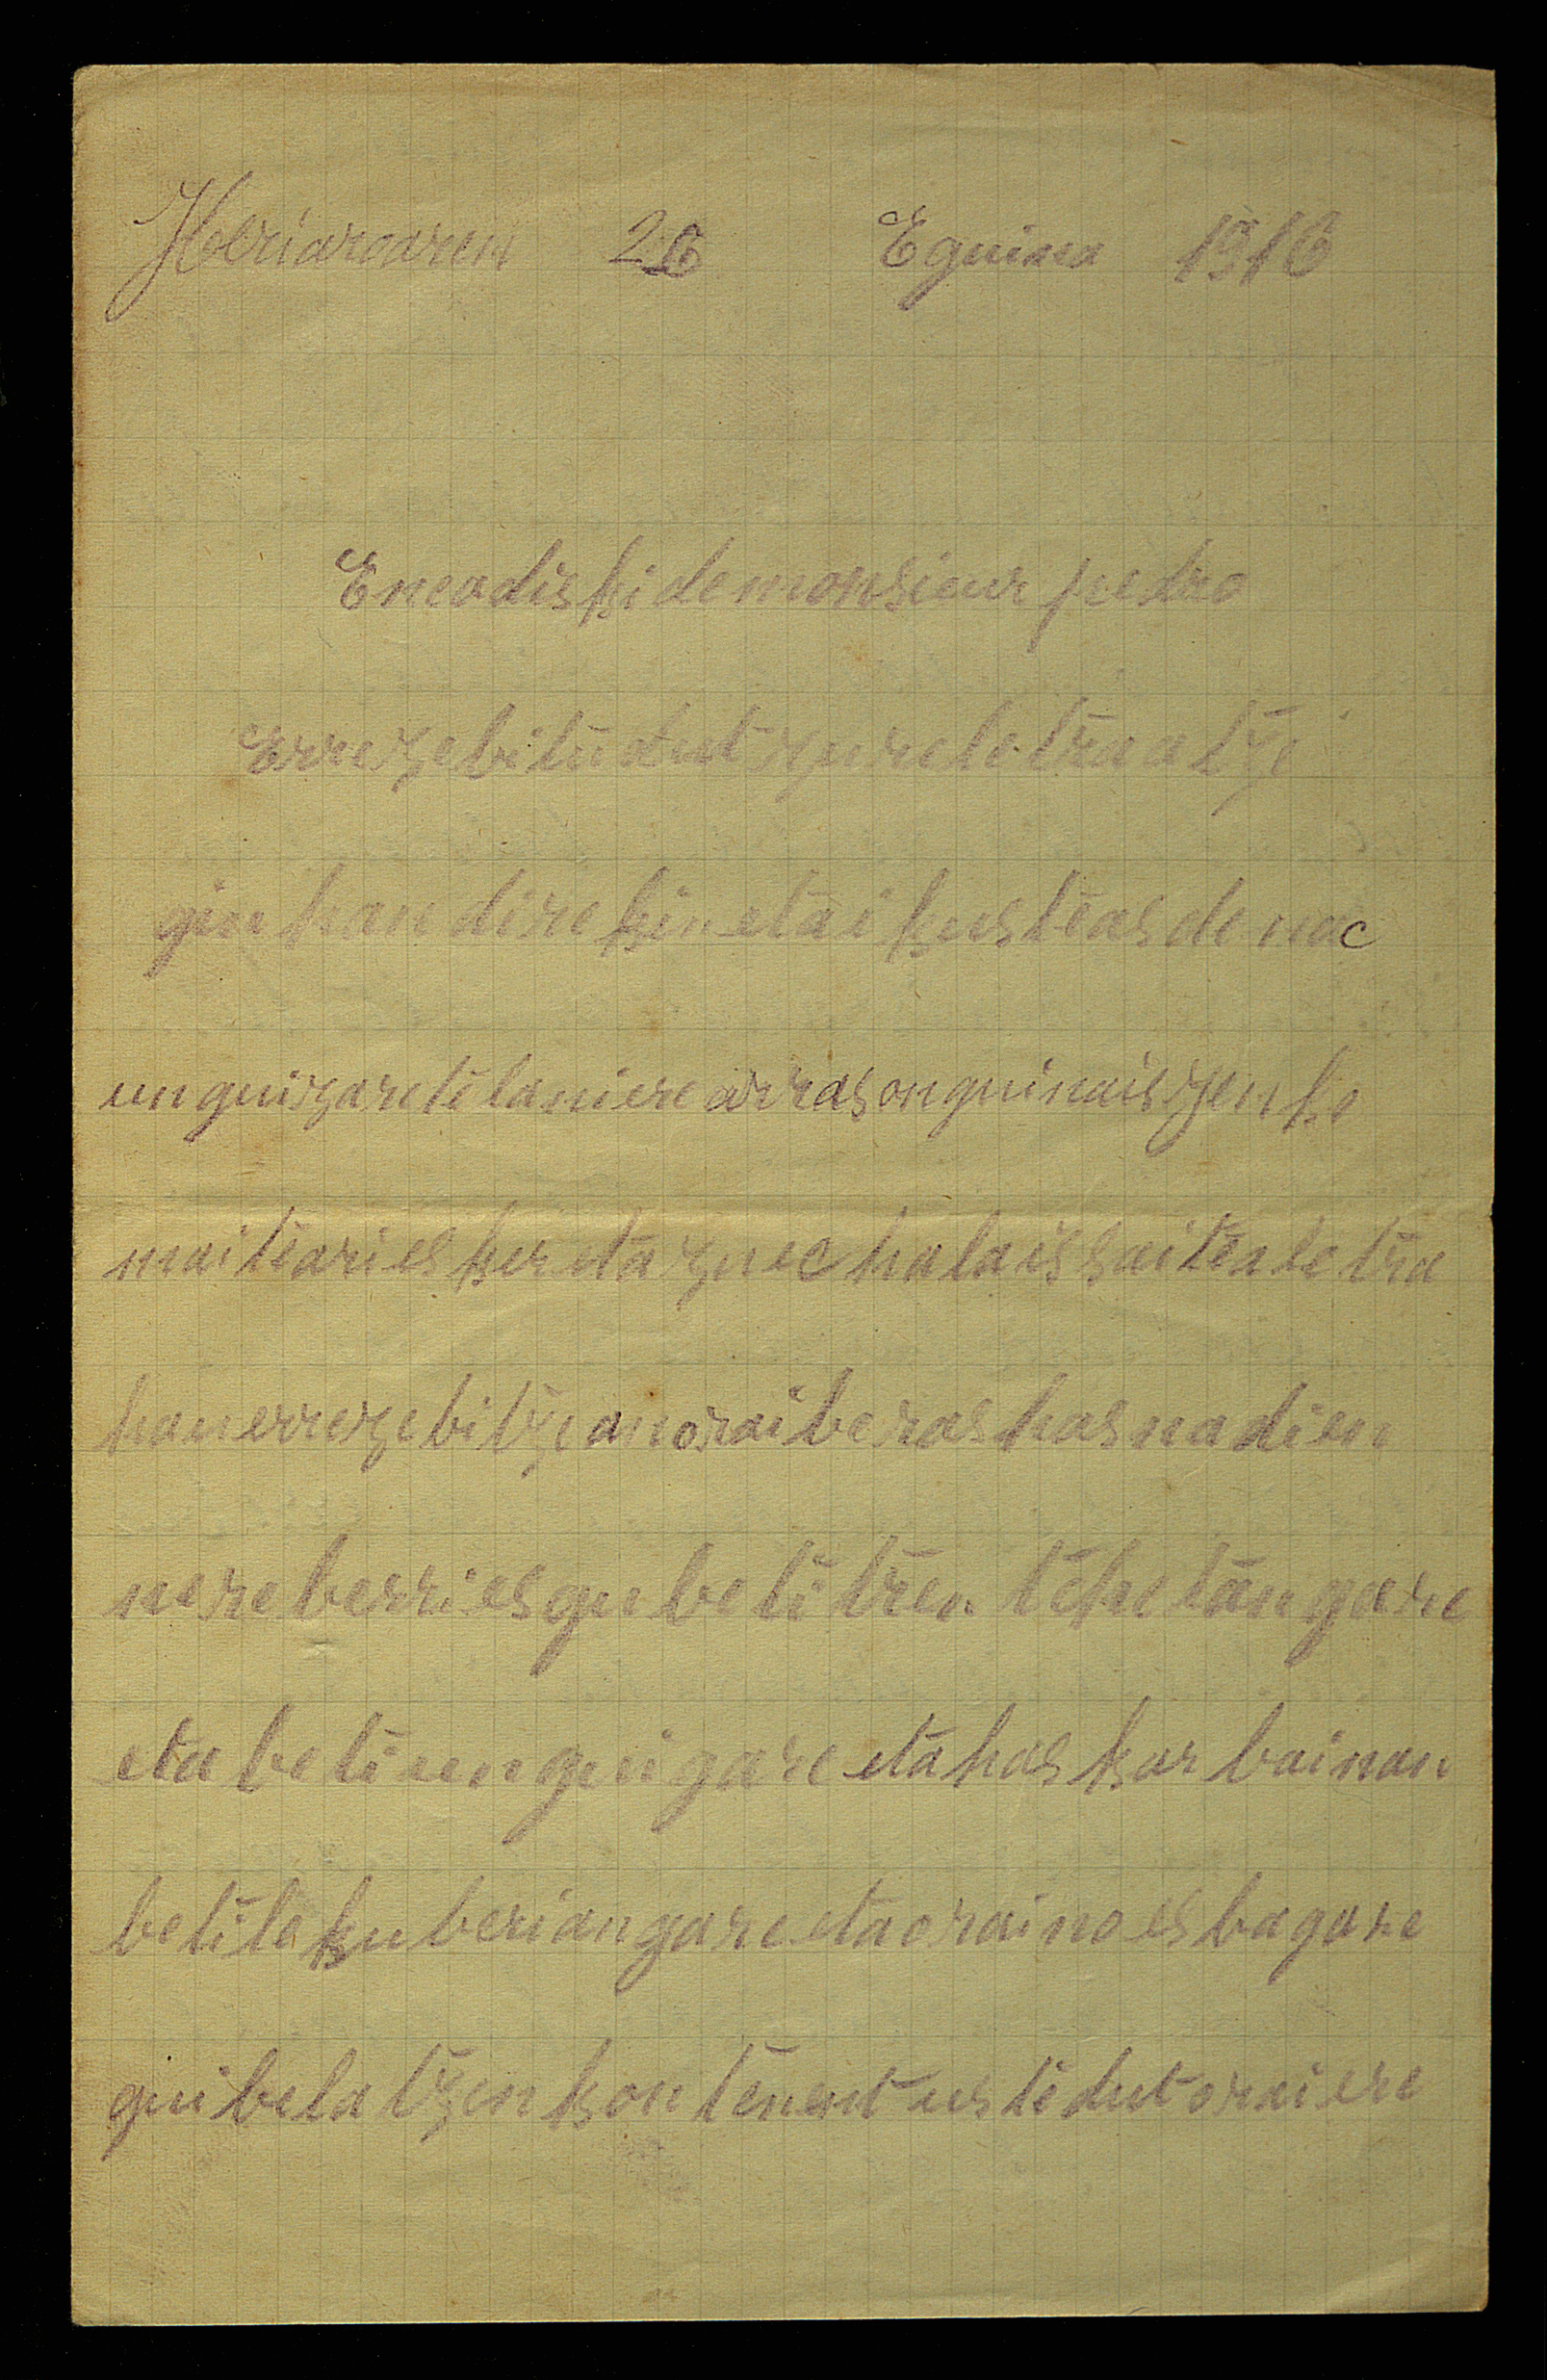 Heriaroaren 26 Eguina 1916
Eneadiskidemonsieur petro
Errezebitu dut zure letraatze
gin handirekin eta ikusteas denac
unguizaretelaniere arras onguinaiz zenho
maiteari esker eta zuec hala issaitea letra
hau errezebitzean orai beras hasnadien
nere berriesgu beti tren tchetan gare
eta beti ungui gare eta haskar bainan
beti leku berian gare eta oraino esbagare
guibelatzen kontenent uste dut orai ere